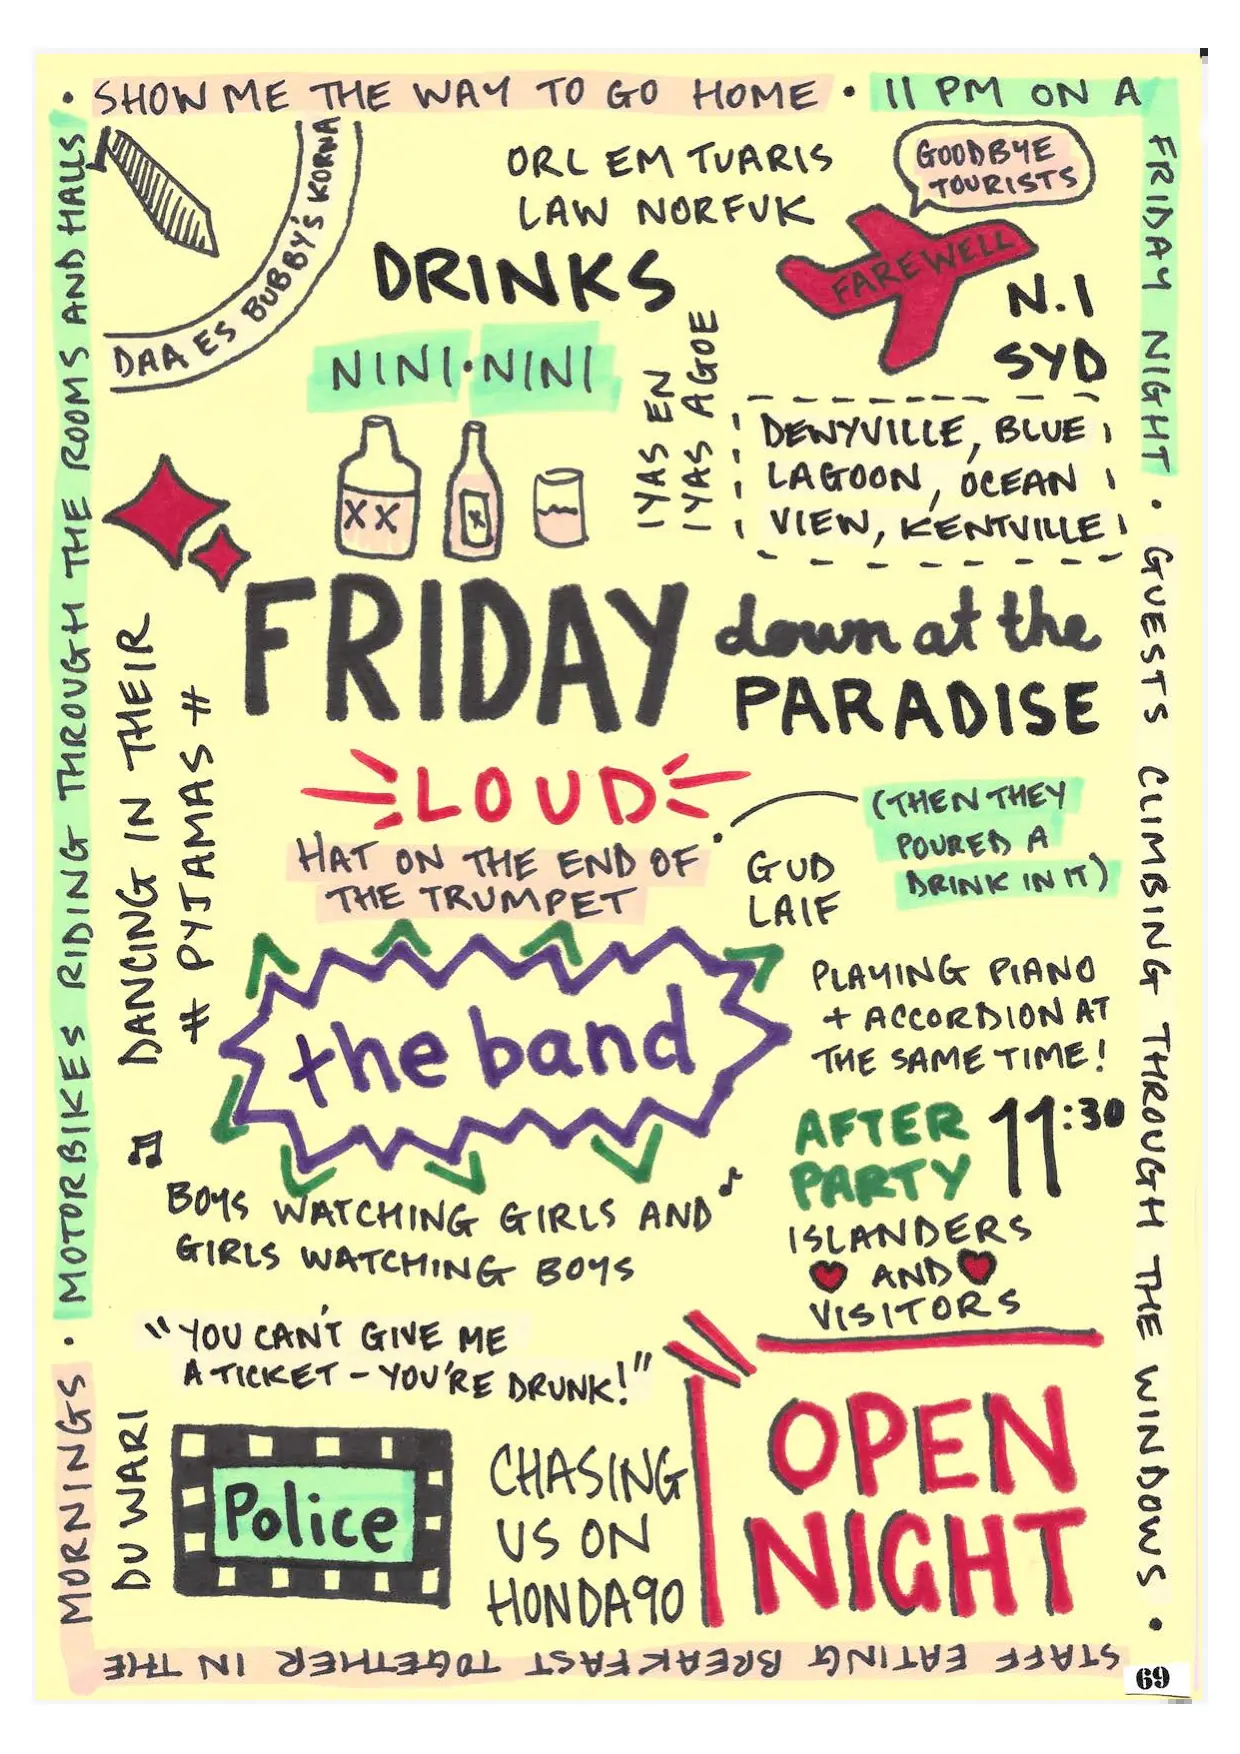 • SHOW ME THE WAY TO GO HOME • 11 PM ON A
FRIDAY NIGHT • GUESTS CLIMBING THROUGH THE WINDOWS •
STAFF EATING BREAKFAST TOGETHER IN THE
MORNINGS • MOTORBIKES RIDING THROUGH THE ROOMS AND HALLS
DAA ES BUBBY'S KORNA
ORL EM TUARIS
LAW NORFUK
GOODBYE
TOURISTS
FAREWELL
N.I
SYD
DRINKS
NINI•NINI
IYAS EN
IYAS AGOE
DENYVILLE, BLUE
LAGOON, OCEAN
VIEW, KENTVILLE
XX
X
FRIDAY down at the
PARADISE
DANCING IN THEIR
# PYJAMAS #
LOUD
HAT ON THE END OF
THE TRUMPET
(THEN THEY
POURED A
DRINK IN IT)
GUD
LAIF
the band
PLAYING PIANO
+ ACCORDION AT
THE SAME TIME!
AFTER
PARTY
11:30
ISLANDERS
AND
VISITORS
BOYS WATCHING GIRLS AND
GIRLS WATCHING BOYS
"YOU CAN'T GIVE ME
A TICKET - YOU'RE DRUNK!"
DU WARI
Police
CHASING
US ON
HONDA90
OPEN
NIGHT
69